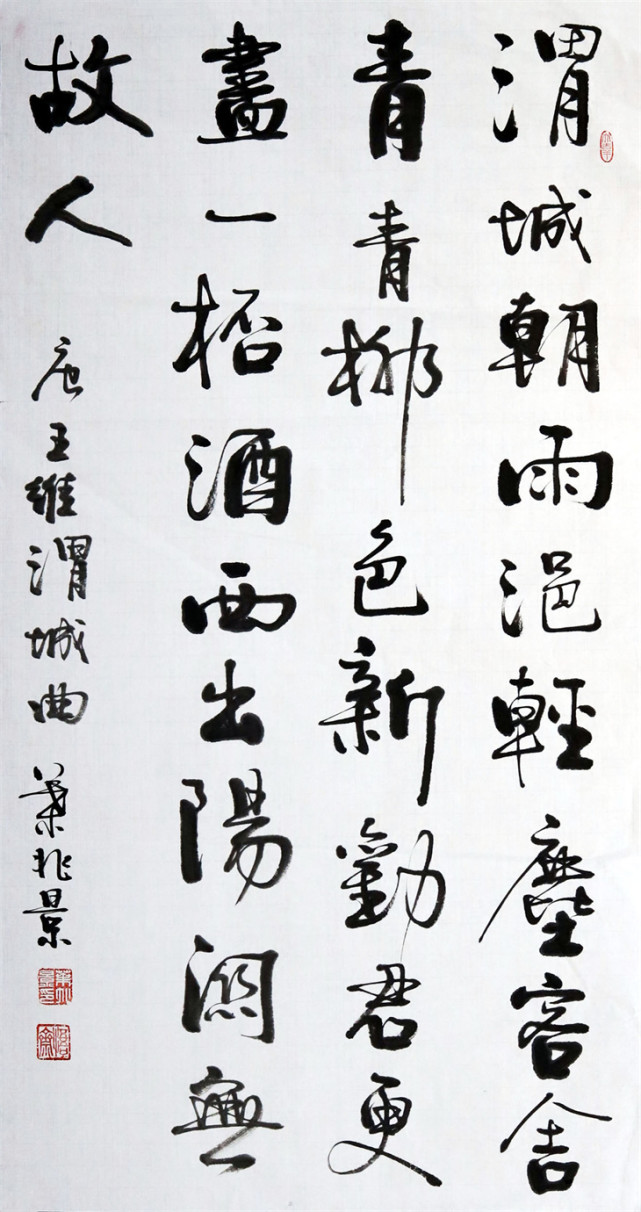 渭城朝雨浥輕塵客舍
青青柳色新勸君更
盡一桮酒西出陽關無
故人
唐王維渭城曲 葉兆景